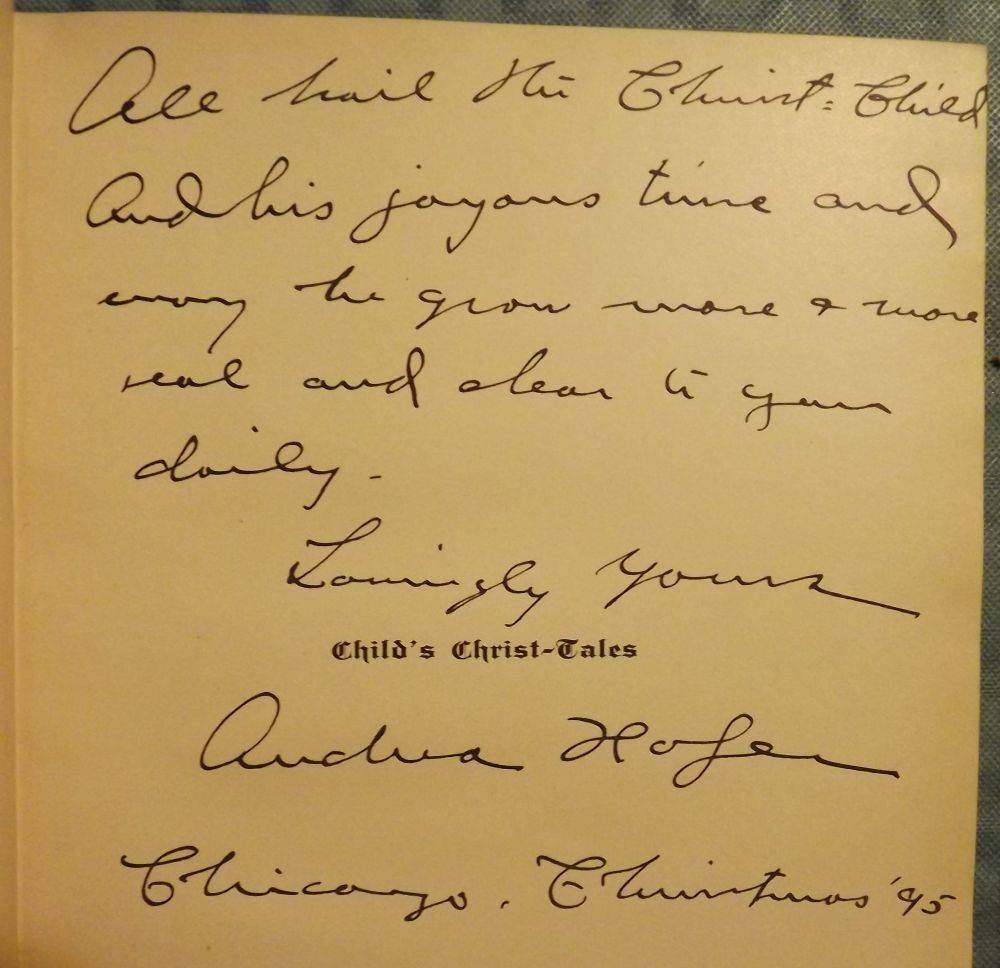 All hail the Christ-Child
And his joyous time and
may he grow more & more
real and clear to you
daily -
Lovingly Yours
Child's Christ-Tales
Andrea Hofer
Chicago. Christmas '95